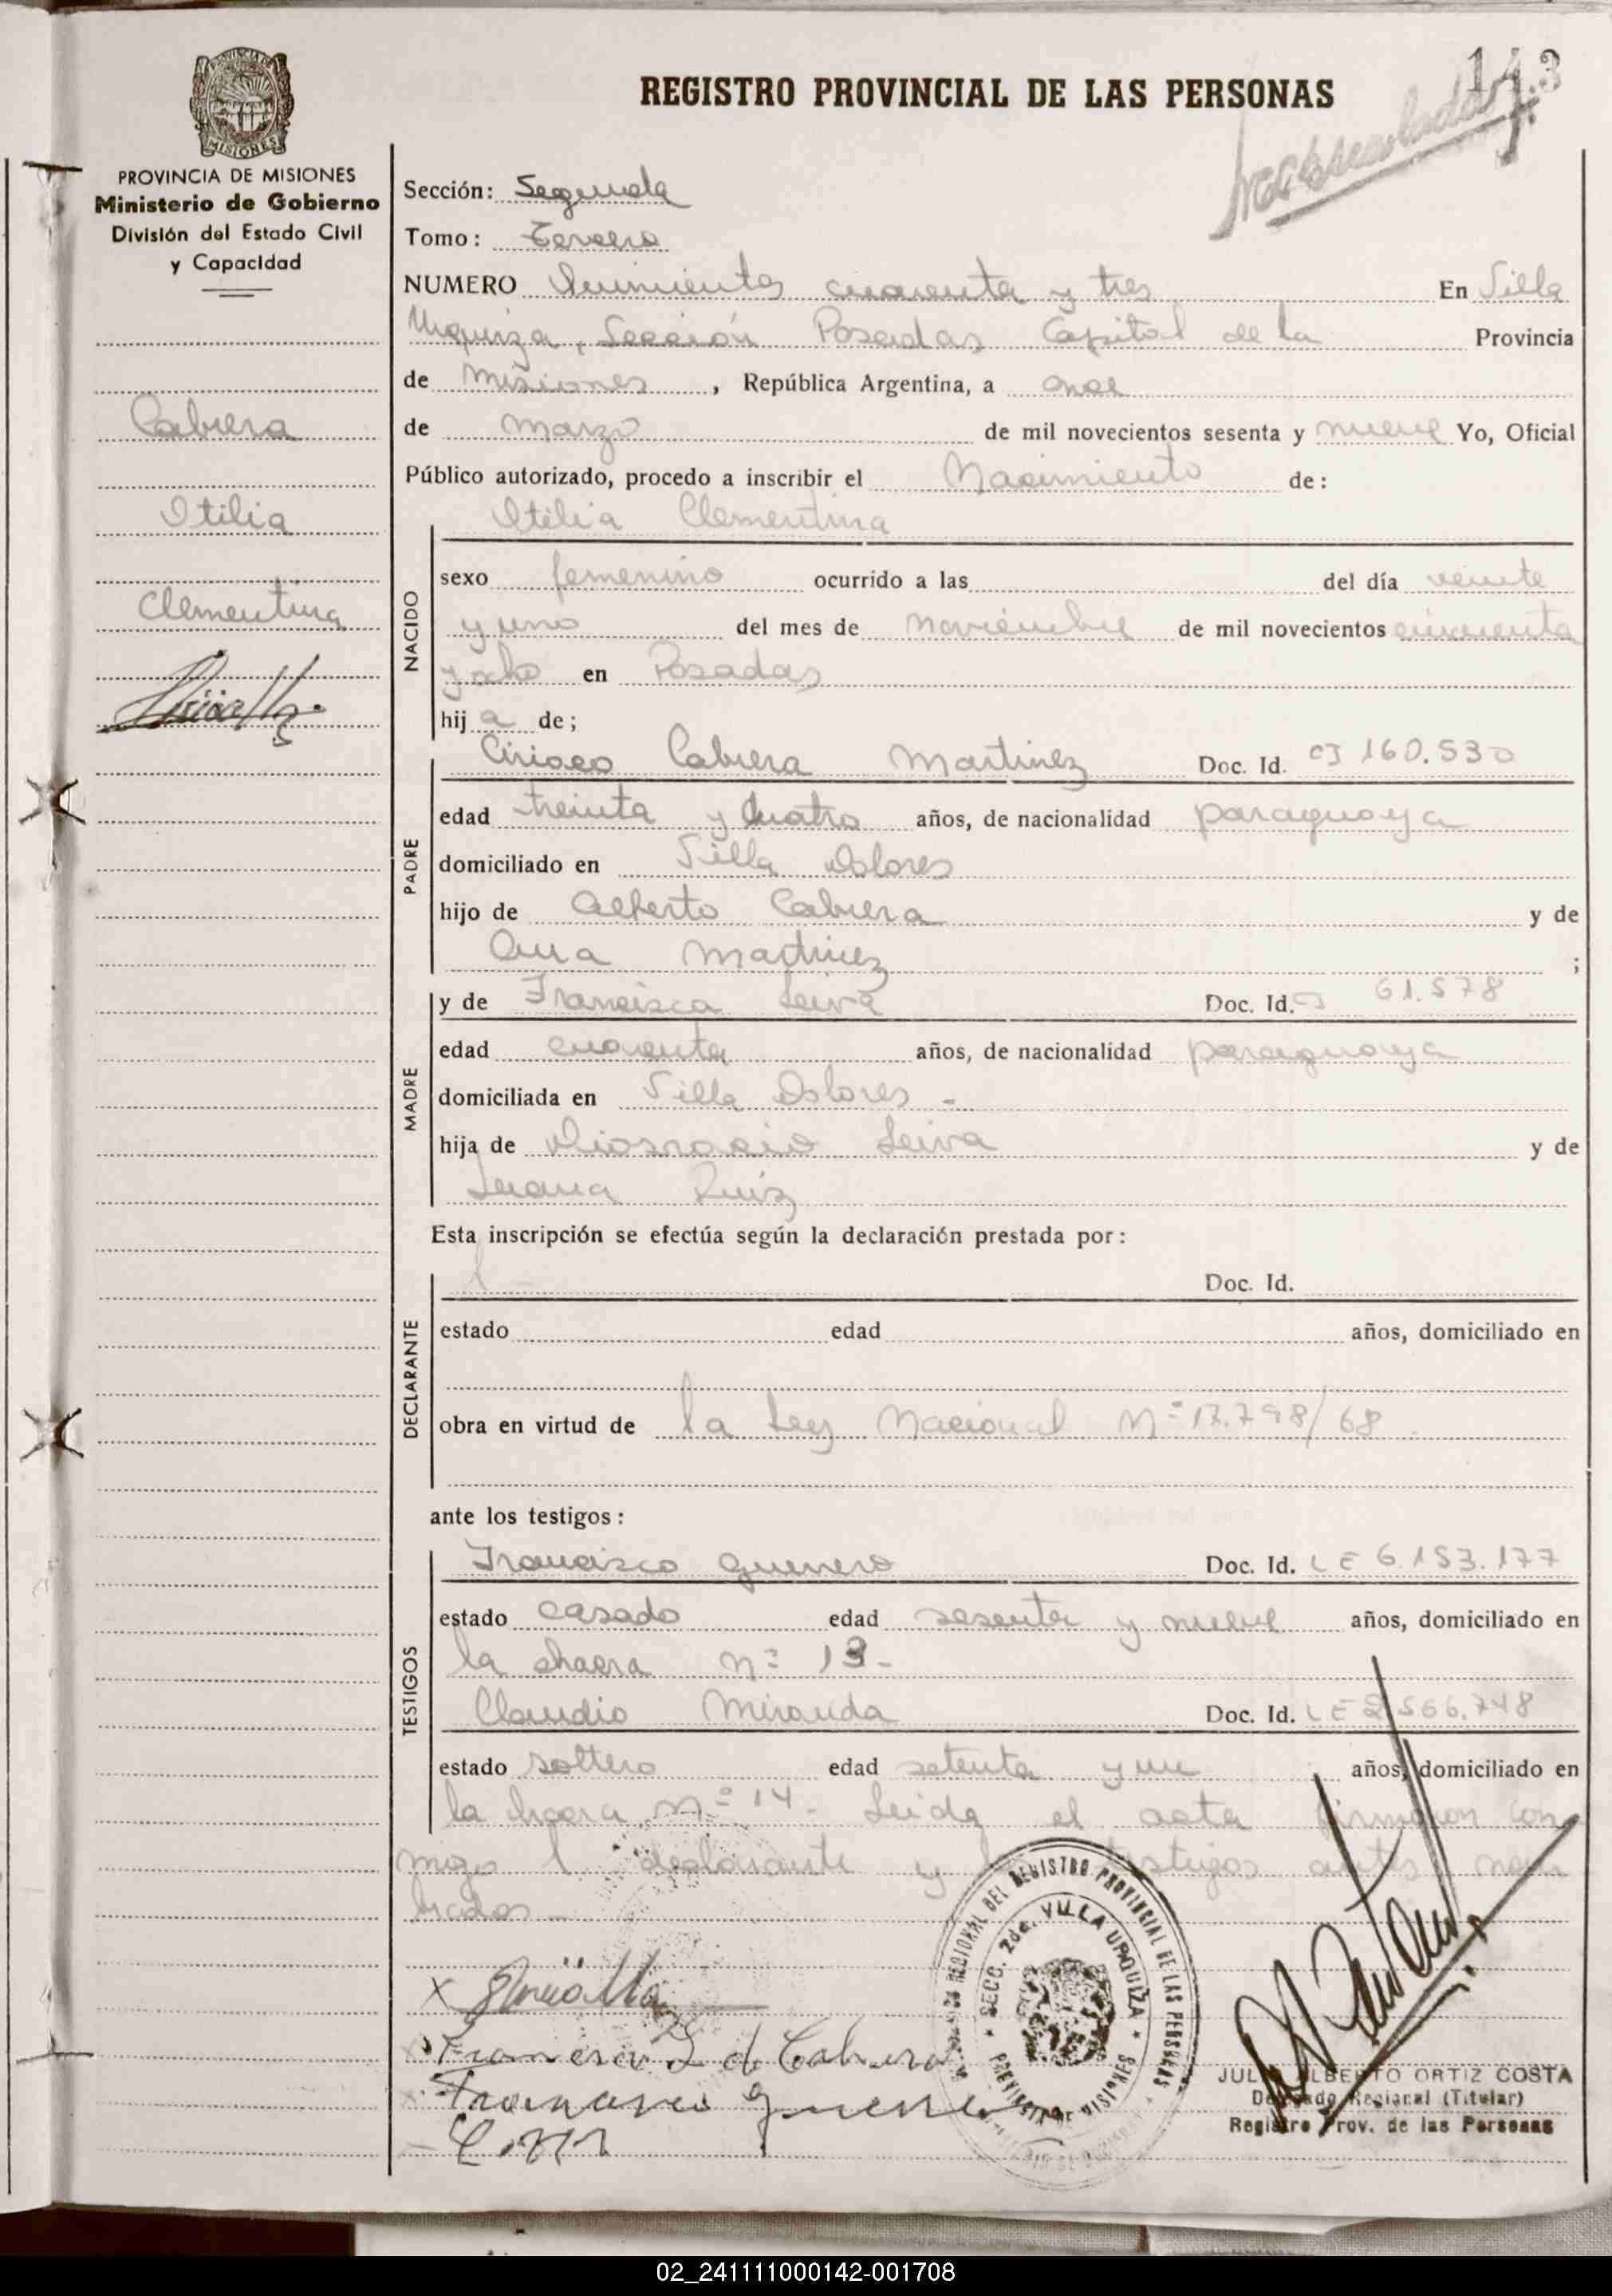 REGISTRO PROVINCIAL DE LAS PERSONAS
MISIONES
PROVINCIA DE MISIONES
Ministerio de Gobierno
División del Estado Civil
y Capacidad
Cabrera
Otilia
Clementina
Sección: Segunda
Tomo: Tercero
NUMERO Quinientos cuarenta y tres En Villa
Urquiza, Sección Posadas Capital de la Provincia
de Misiones, República Argentina, a once
de marzo de mil novecientos sesenta y nueve Yo, Oficial
Público autorizado, procedo a inscribir el Nacimiento de:
Otilia Clementina
NACIDO
sexo femenino ocurrido a las del día veinte
y uno del mes de noviembre de mil novecientos cincuenta
y ocho en Posadas
hij a de;
PADRE
Ciriaco Cabrera Martinez Doc. Id. CI 160.530
edad treinta y cuatro años, de nacionalidad paraguaya
domiciliado en Villa Dolores
hijo de Alberto Cabrera y de
Ana Martinez ;
MADRE
y de Francisca Leiva Doc. Id. CI 61.578
edad cuarenta años, de nacionalidad paraguaya
domiciliada en Villa Dolores -
hija de Leiva y de
Juana Ruiz
Esta inscripción se efectúa según la declaración prestada por:
DECLARANTE
Doc. Id.
estado edad años, domiciliado en
obra en virtud de la Ley Nacional Nº 17.798/68
ante los testigos:
TESTIGOS
Francisco Guerrero Doc. Id. LE 6.153.177
estado casado edad sesenta y nueve años, domiciliado en
la chacra nº 13-
Claudio Miranda Doc. Id. LE 2.566.748
estado soltero edad setenta y un años, domiciliado en
la chacra nº 14- Leida el acta firmaron con
migo l declarante y testigos antes nom
brados
Francisca L de Cabrera
Francisco Guerrero
REGIONAL DEL REGISTRO PROVINCIAL DE LAS PERSONAS
SECC. 2da. VILLA URQUIZA
PROVINCIA DE MISIONES
JULIO ALBERTO ORTIZ COSTA
Delegado Regional (Titular)
Registro Prov. de las Personas
02_241111000142-001708